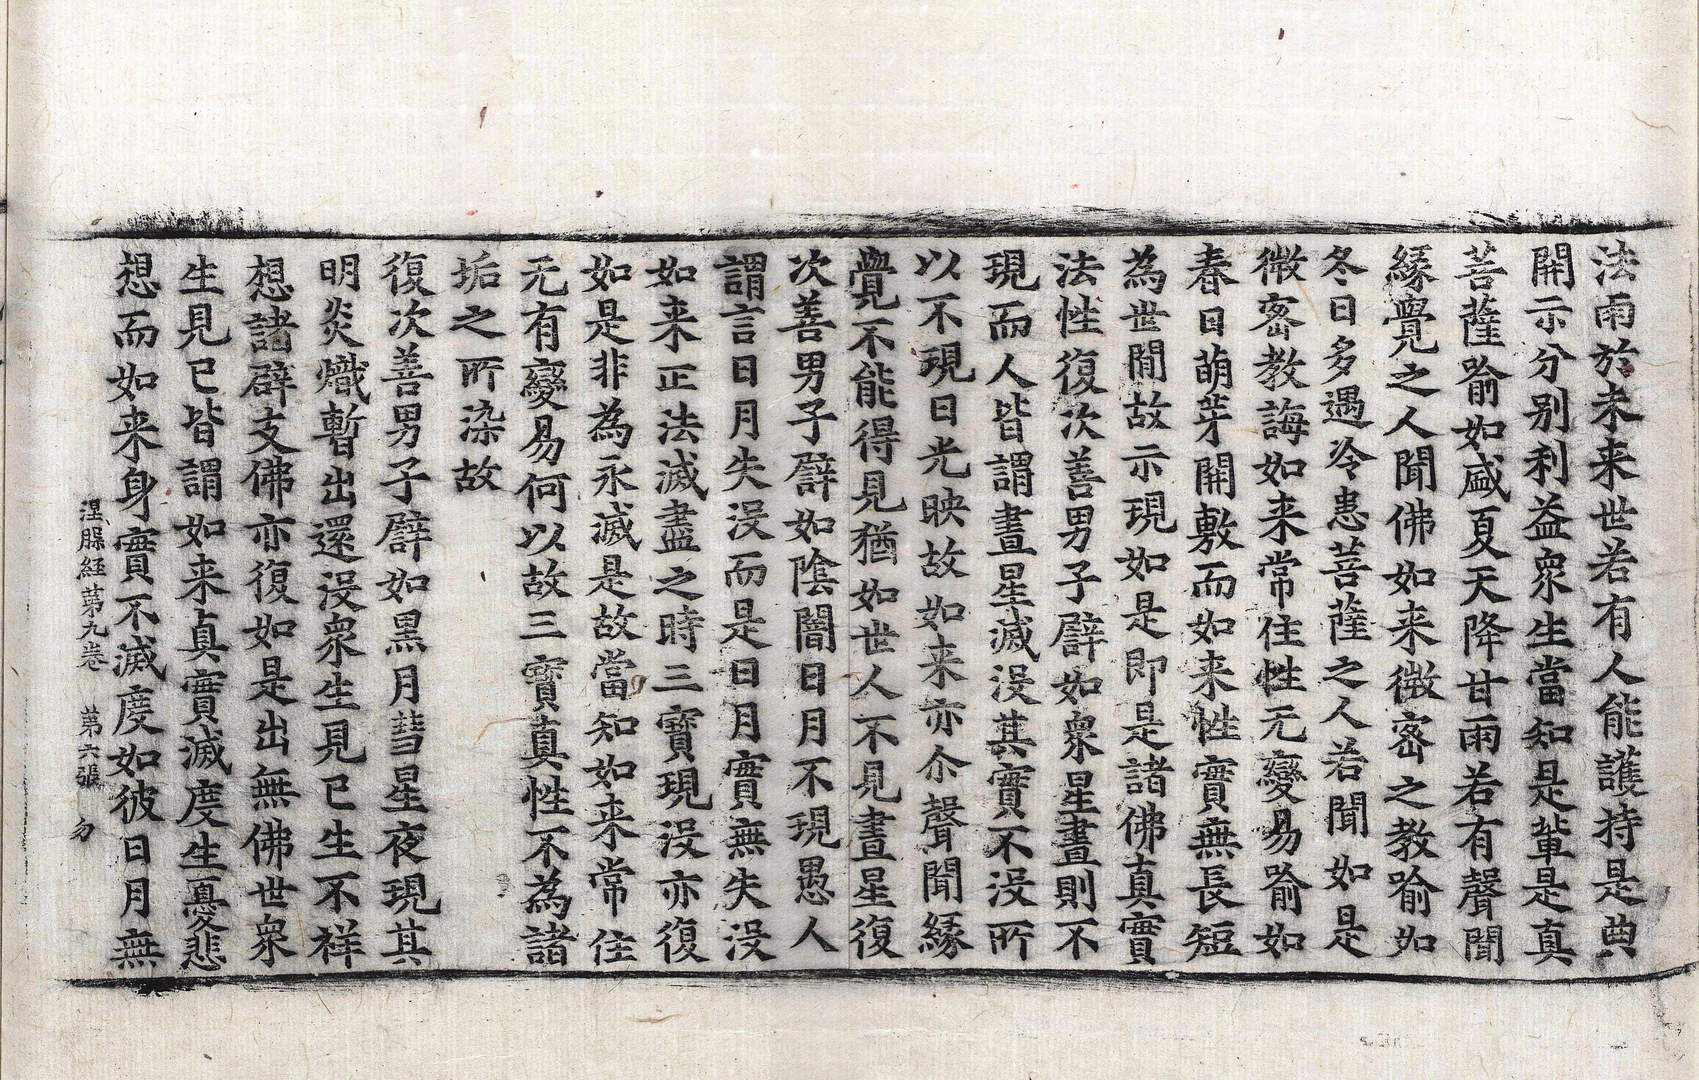 法雨於未来世若有人能護持是典
開示分别利益衆生當知是輩是真
菩薩喻如盛夏天降甘雨若有聲聞
緣覺之人聞佛如来微宻之教喻如
冬日多遇冷患菩薩之人若聞如是
微宻教誨如来常住性无變易喻如
春日萌芽開敷而如来性實無長短
為世間故示現如是即是諸佛真實
法性復次善男子譬如衆星晝則不
現而人皆謂晝星滅没其實不没所
以不現日光映故如来亦尒聲聞緣
覺不能得見猶如世人不見晝星復
次善男子譬如陰闇日月不現愚人
謂言日月失没而是日月實無失没
如来正法滅盡之時三寶現没亦復
如是非為永滅是故當知如来常住
无有變易何以故三寶真性不為諸
垢之所染故
復次善男子譬如黒月彗星夜現其
明炎熾暫出還没衆生見已生不祥
想諸辟支佛亦復如是出無佛世衆
生見已皆謂如来真實滅度生憂悲
想而如来身實不滅度如彼日月無
涅槃経第九卷 第六張 勿